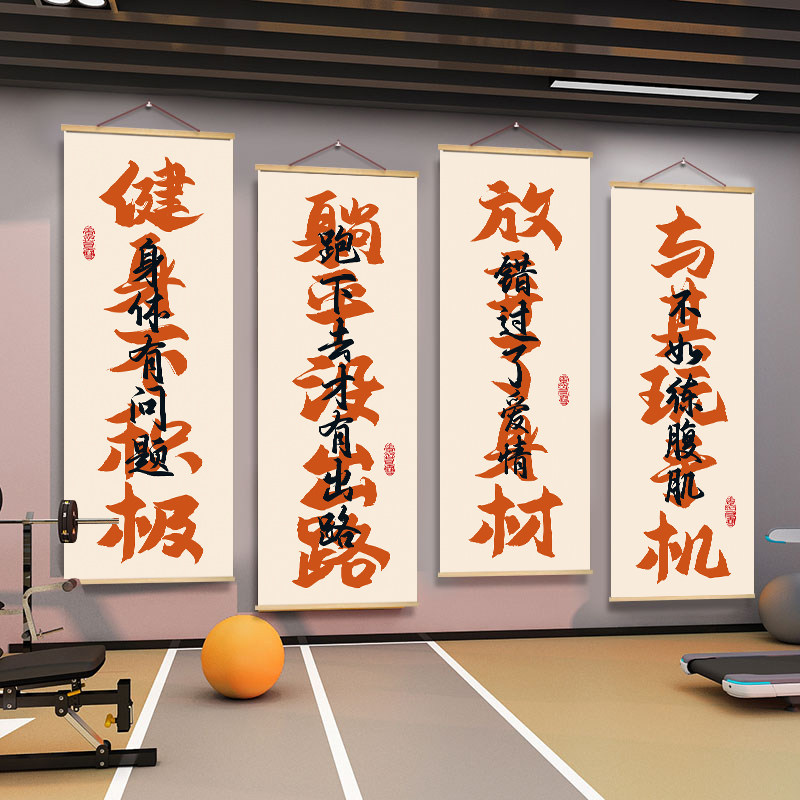 健身不积极
身体有问题
躺平没出路
跑下去才有出路
放弃了身材
错过了爱情
与其玩手机
不如练腹肌